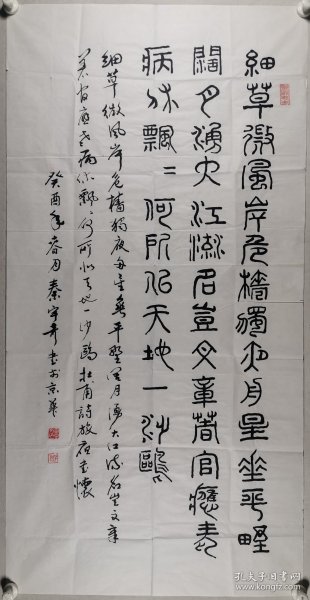 細草微風岸危檣獨夜舟星垂平野
闊月湧大江流名豈文章著官應老
病休飄=何所佀天地一沙鷗
細草微風岸危檣獨夜舟星垂平野闊月湧大江流名豈文章
著官應老病休飄飄何所似天地一沙鷗杜甫詩旅夜書懷
癸酉年春月秦書於京華
孔夫子旧书网